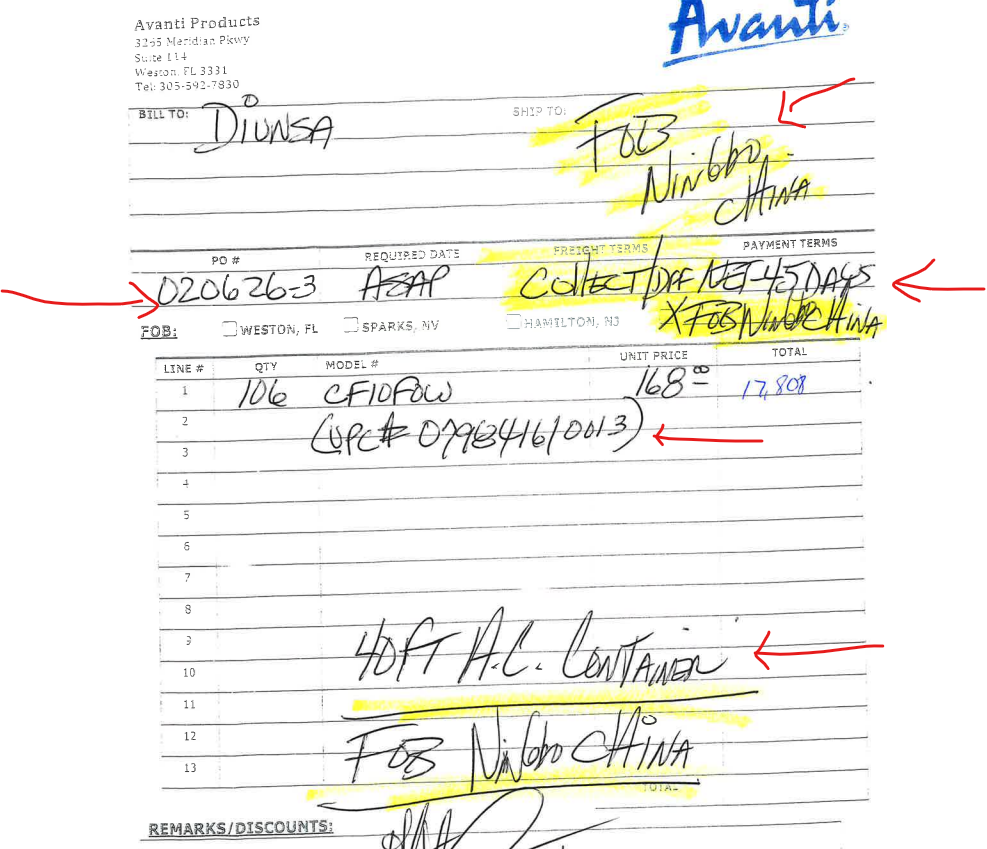 Avanti Products
3265 Meridian Pkwy
Suite 114
Weston, FL 3331
Tel: 305-592-7830
Avanti
BILL TO: DIUNSA
SHIP TO: FOB
Ningbo
CHINA
PO # REQUIRED DATE FREIGHT TERMS PAYMENT TERMS
020626-3 ASAP Collect/ NET-45 DAYS
X FOB Ningbo CHINA
FOB: WESTON, FL SPARKS, NV HAMILTON, NJ
LINE # QTY MODEL # UNIT PRICE TOTAL
1 106 CF10F0W 168 00 17,808
2
(UPC# 079841610013)
3
4
5
6
7
8
9
40FT H.C. CONTAINER
10
11
12
FOB Ningbo CHINA
13
TOTAL
REMARKS/DISCOUNTS: